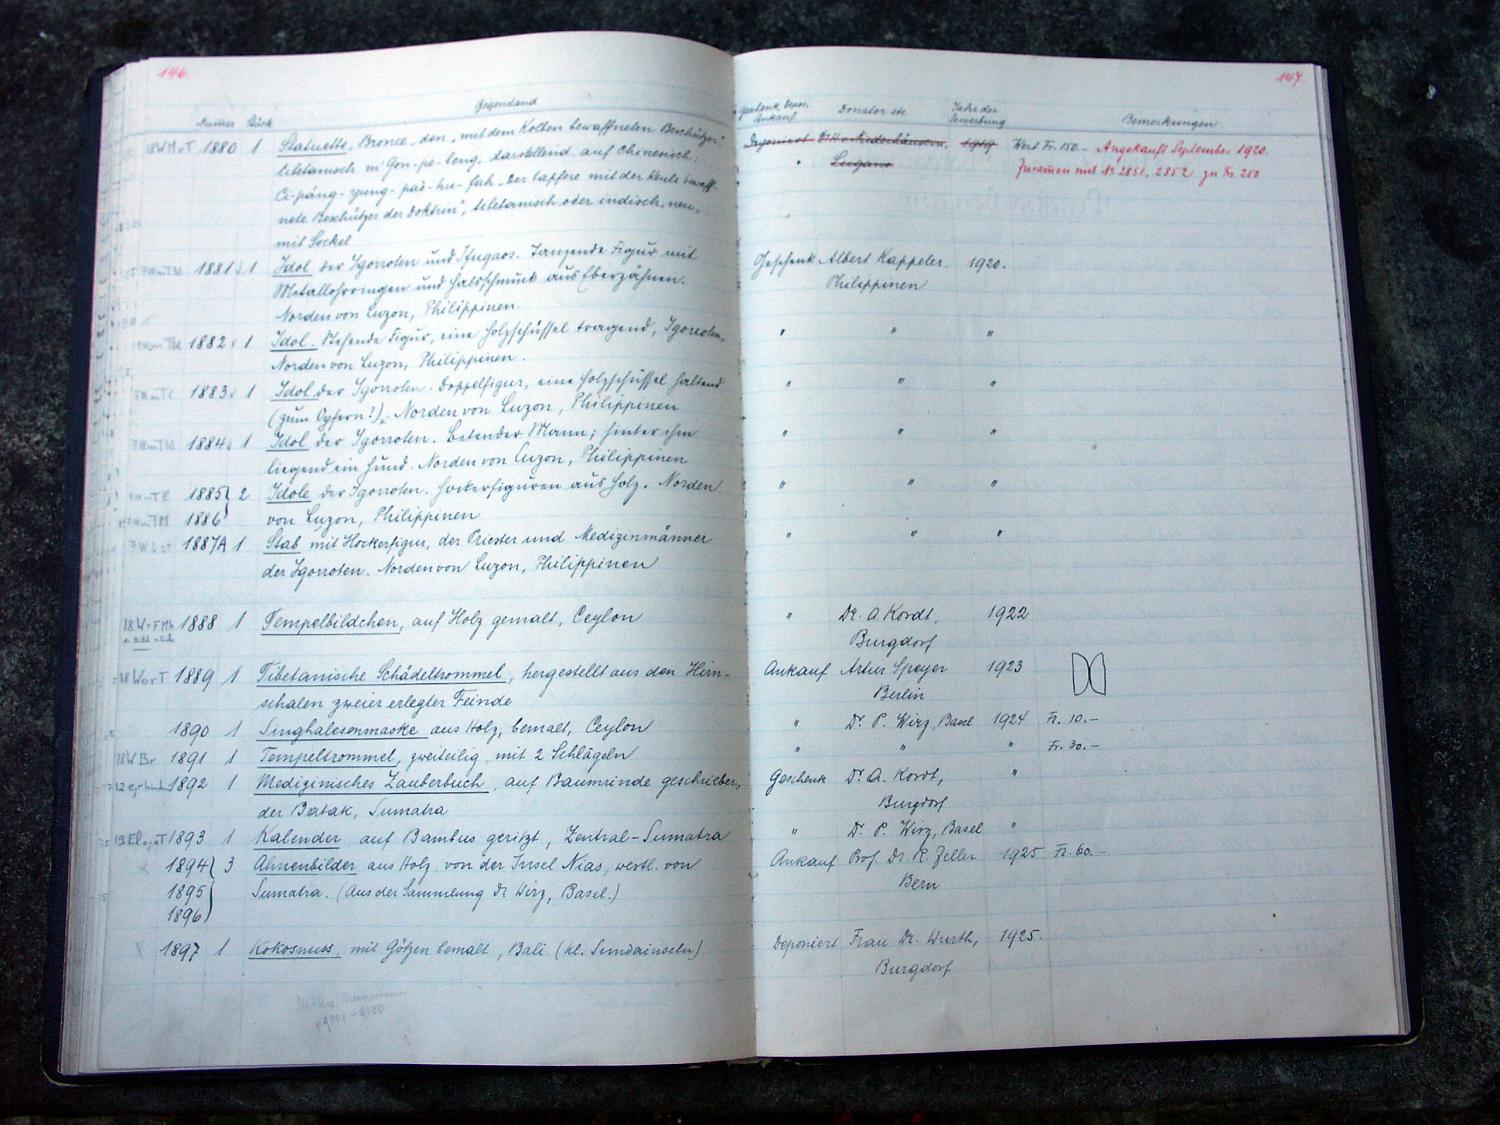 146.
Numer Stück Gegenstand
1880 1 Statuette, Bronce, den „mit dem Kolben bewaffneten Beschützer“
tibetanisch m'Gon-po-beng, darstellend auf chinesisch:
Ci-páng-yung-pao-hu-fah „Der tapfere mit der Keule bewaff-
nete Beschützer der Doktrin“, tibetanisch oder indisch, neu,
mit Sockel
1881 1 Idol der Igorroten und Ifugaos. Tanzende Figur mit
Metallohrringen und Halsschmuck aus Eberzähnen.
Norden von Luzon, Philippinen.
1882 1 Idol. Stehende Figur, eine Holzschüssel tragend, Igorroten,
Norden von Luzon, Philippinen.
1883 1 Idol der Igorroten. Doppelfigur, eine Holzschüssel haltend
(zum Opfern?), Norden von Luzon, Philippinen
1884 1 Idol der Igorroten. Betender Mann; hinter ihm
liegend ein Hund. Norden von Luzon, Philippinen
1885 } 2 Idole der Igorroten. Hockerfiguren aus Holz. Norden
1886 von Luzon, Philippinen
1887A 1 Stab mit Hockerfigur, der Priester und Medizinmänner
der Igorroten. Norden von Luzon, Philippinen
1888 1 Tempelbildchen, auf Holz gemalt, Ceylon
1889 1 Tibetanische Schädeltrommel, hergestellt aus den Hirn-
schalen zweier erlegter Feinde
1890 1 Singhalesenmaske aus Holz, bemalt, Ceylon
1891 1 Tempeltrommel, zweiteilig, mit 2 Schlägeln
1892 1 Medizinisches Zauberbuch, auf Baumrinde geschrieben,
der Batak, Sumatra
1893 1 Kalender auf Bambus geritzt, Zentral-Sumatra
1894 } 3 Ahnenbilder aus Holz von der Insel Nias, westl. von
1895 Sumatra. (Aus der Sammlung Dr Wirz, Basel.)
1896
1897 1 Kokosnuss, mit Götzen bemalt, Bali (kl. Sundainseln)
147
Geschenk Depon. Ankauf Donator etc Jahr der Erwerbung Bemerkungen
Deponiert Otto Niederhäusern, 1919 Wert Fr. 150.— Angekauft September 1920.
" Lugano Zusamen mit Nr 2851, 2852 zu Fr. 250
Geschenk Albert Kappeler. 1920.
Philippinen
" " "
" " "
" " "
" " "
" " "
" Dr. A. Kordt, 1922
Burgdorf
Ankauf Artur Speyer 1923
Berlin
" Dr. P. Wirz, Basel 1924 Fr. 10.—
" " " Fr. 30.—
Geschenk Dr A. Kordt, "
Burgdorf
" Dr. P. Wirz, Basel "
Ankauf Prof. Dr. R. Zeller 1925 Fr. 60.—
Bern
Deponiert Frau Dr. Wurth, 1925.
Burgdorf